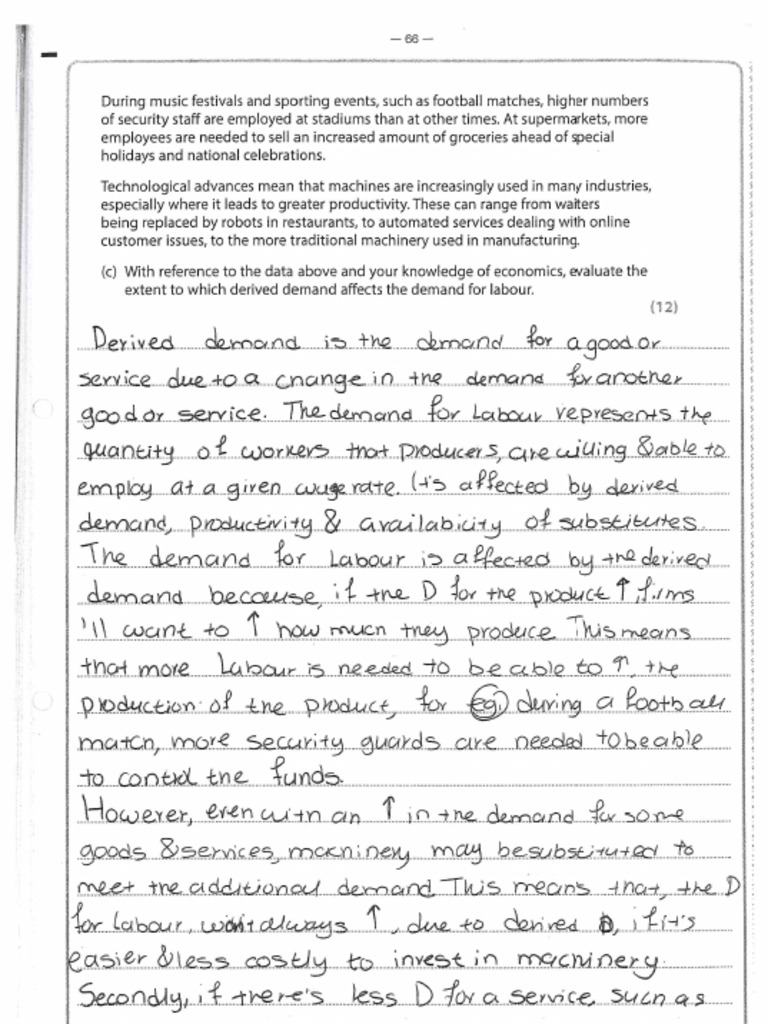 — 66 —
During music festivals and sporting events, such as football matches, higher numbers
of security staff are employed at stadiums than at other times. At supermarkets, more
employees are needed to sell an increased amount of groceries ahead of special
holidays and national celebrations.
Technological advances mean that machines are increasingly used in many industries,
especially where it leads to greater productivity. These can range from waiters
being replaced by robots in restaurants, to automated services dealing with online
customer issues, to the more traditional machinery used in manufacturing.
(c) With reference to the data above and your knowledge of economics, evaluate the
extent to which derived demand affects the demand for labour.
(12)
Derived demand is the demand for a good or
service due to a change in the demand for another
good or service. The demand for Labour represents the
quantity of workers that producers, are willing & able to
employ at a given wage rate. It's affected by derived
demand, productivity & availability of substitutes.
The demand for Labour is affected by the derived
demand because, if the D for the product ↑, firms
'll want to ↑ how much they produce. This means
that more Labour is needed to be able to ↑, the
production of the product, for eg. during a football
match, more security guards are needed to be able
to control the funds.
However, even with an ↑ in the demand for some
goods & services, machinery may be substituted to
meet the additional demand. This means that, the D
for labour, won't always ↑, due to derived D, if it's
easier & less costly to invest in machinery.
Secondly, if there's less D for a service, such as